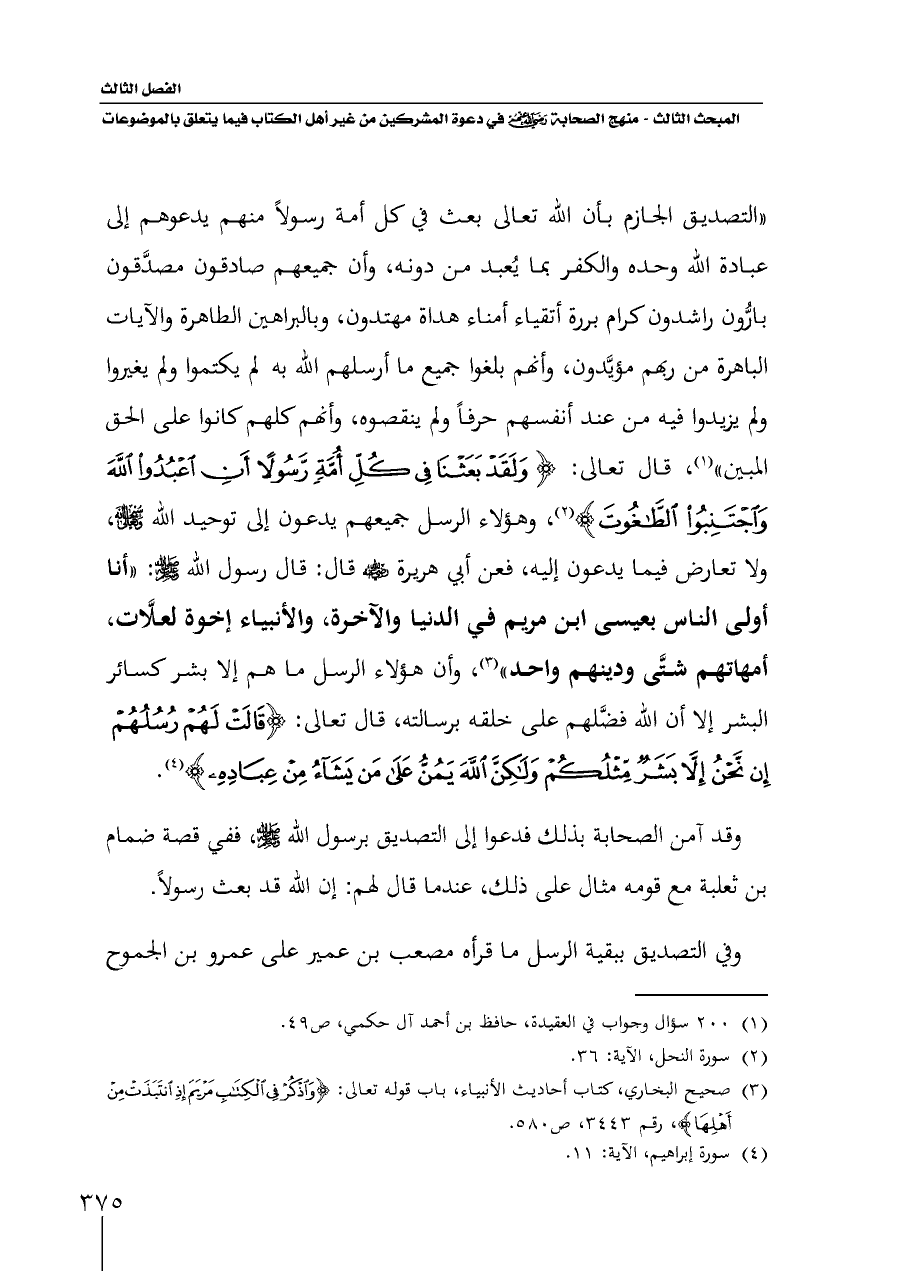 الفصل الثالث
المبحث الثالث - منهج الصحابة رضي الله عنهم في دعوة المشركين من غير أهل الكتاب فيما يتعلق بالموضوعات
«التصديق الجازم بأن الله تعالى بعث في كل أمة رسولاً منهم يدعوهم إلى
عبادة الله وحده والكفر بما يُعبد من دونه، وأن جميعهم صادقون مصدَّقون
بارُّون راشدون كرام بررة أتقياء أمناء هداة مهتدون، وبالبراهين الطاهرة والآيات
الباهرة من ربهم مؤيَّدون، وأنهم بلغوا جميع ما أرسلهم الله به لم يكتموا ولم يغيروا
ولم يزيدوا فيه من عند أنفسهم حرفاً ولم ينقصوه، وأنهم كلهم كانوا على الحق
المبين»(١)، قال تعالى: ﴿وَلَقَدْ بَعَثْنَا فِي كُلِّ أُمَّةٍ رَّسُولًا أَنِ ٱعْبُدُواْ ٱللَّهَ
وَٱجْتَنِبُواْ ٱلطَّٰغُوتَ﴾(٢)، وهؤلاء الرسل جميعهم يدعون إلى توحيد الله ﷻ،
ولا تعارض فيما يدعون إليه، فعن أبي هريرة رضي الله عنه قال: قال رسول الله ﷺ: «أنا
أولى الناس بعيسى ابن مريم في الدنيا والآخرة، والأنبياء إخوة لعلَّات،
أمهاتهم شتَّى ودينهم واحد»(٣)، وأن هؤلاء الرسل ما هم إلا بشر كسائر
البشر إلا أن الله فضَّلهم على خلقه برسالته، قال تعالى: ﴿قَالَتْ لَهُمْ رُسُلُهُمْ
إِن نَّحْنُ إِلَّا بَشَرٌ مِّثْلُكُمْ وَلَٰكِنَّ ٱللَّهَ يَمُنُّ عَلَىٰ مَن يَشَآءُ مِنْ عِبَادِهِۦ﴾(٤).
وقد آمن الصحابة بذلك فدعوا إلى التصديق برسول الله ﷺ، ففي قصة ضمام
بن ثعلبة مع قومه مثال على ذلك، عندما قال لهم: إن الله قد بعث رسولاً.
وفي التصديق ببقية الرسل ما قرأه مصعب بن عمير على عمرو بن الجموح
(١) ٢٠٠ سؤال وجواب في العقيدة، حافظ بن أحمد آل حكمي، ص٤٩.
(٢) سورة النحل، الآية: ٣٦.
(٣) صحيح البخاري، كتاب أحاديث الأنبياء، باب قوله تعالى: ﴿وَٱذْكُرْ فِي ٱلْكِتَٰبِ مَرْيَمَ إِذِ ٱنتَبَذَتْ مِنْ
أَهْلِهَا﴾، رقم ٣٤٤٣، ص٥٨٠.
(٤) سورة إبراهيم، الآية: ١١.
٣٧٥